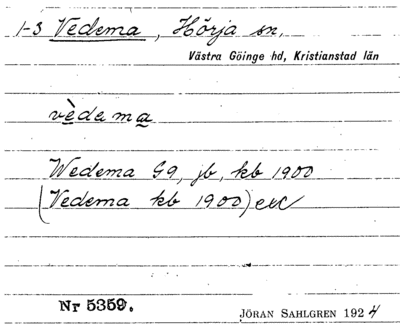 1-3 Vedema, Hörja sn,
Västra Göinge hd, Kristianstad län
vèdema
Wedema G9, jb, kb 1900
(Vedema kb 1900) etc
Nr 5359.
JÖRAN SAHLGREN 1924